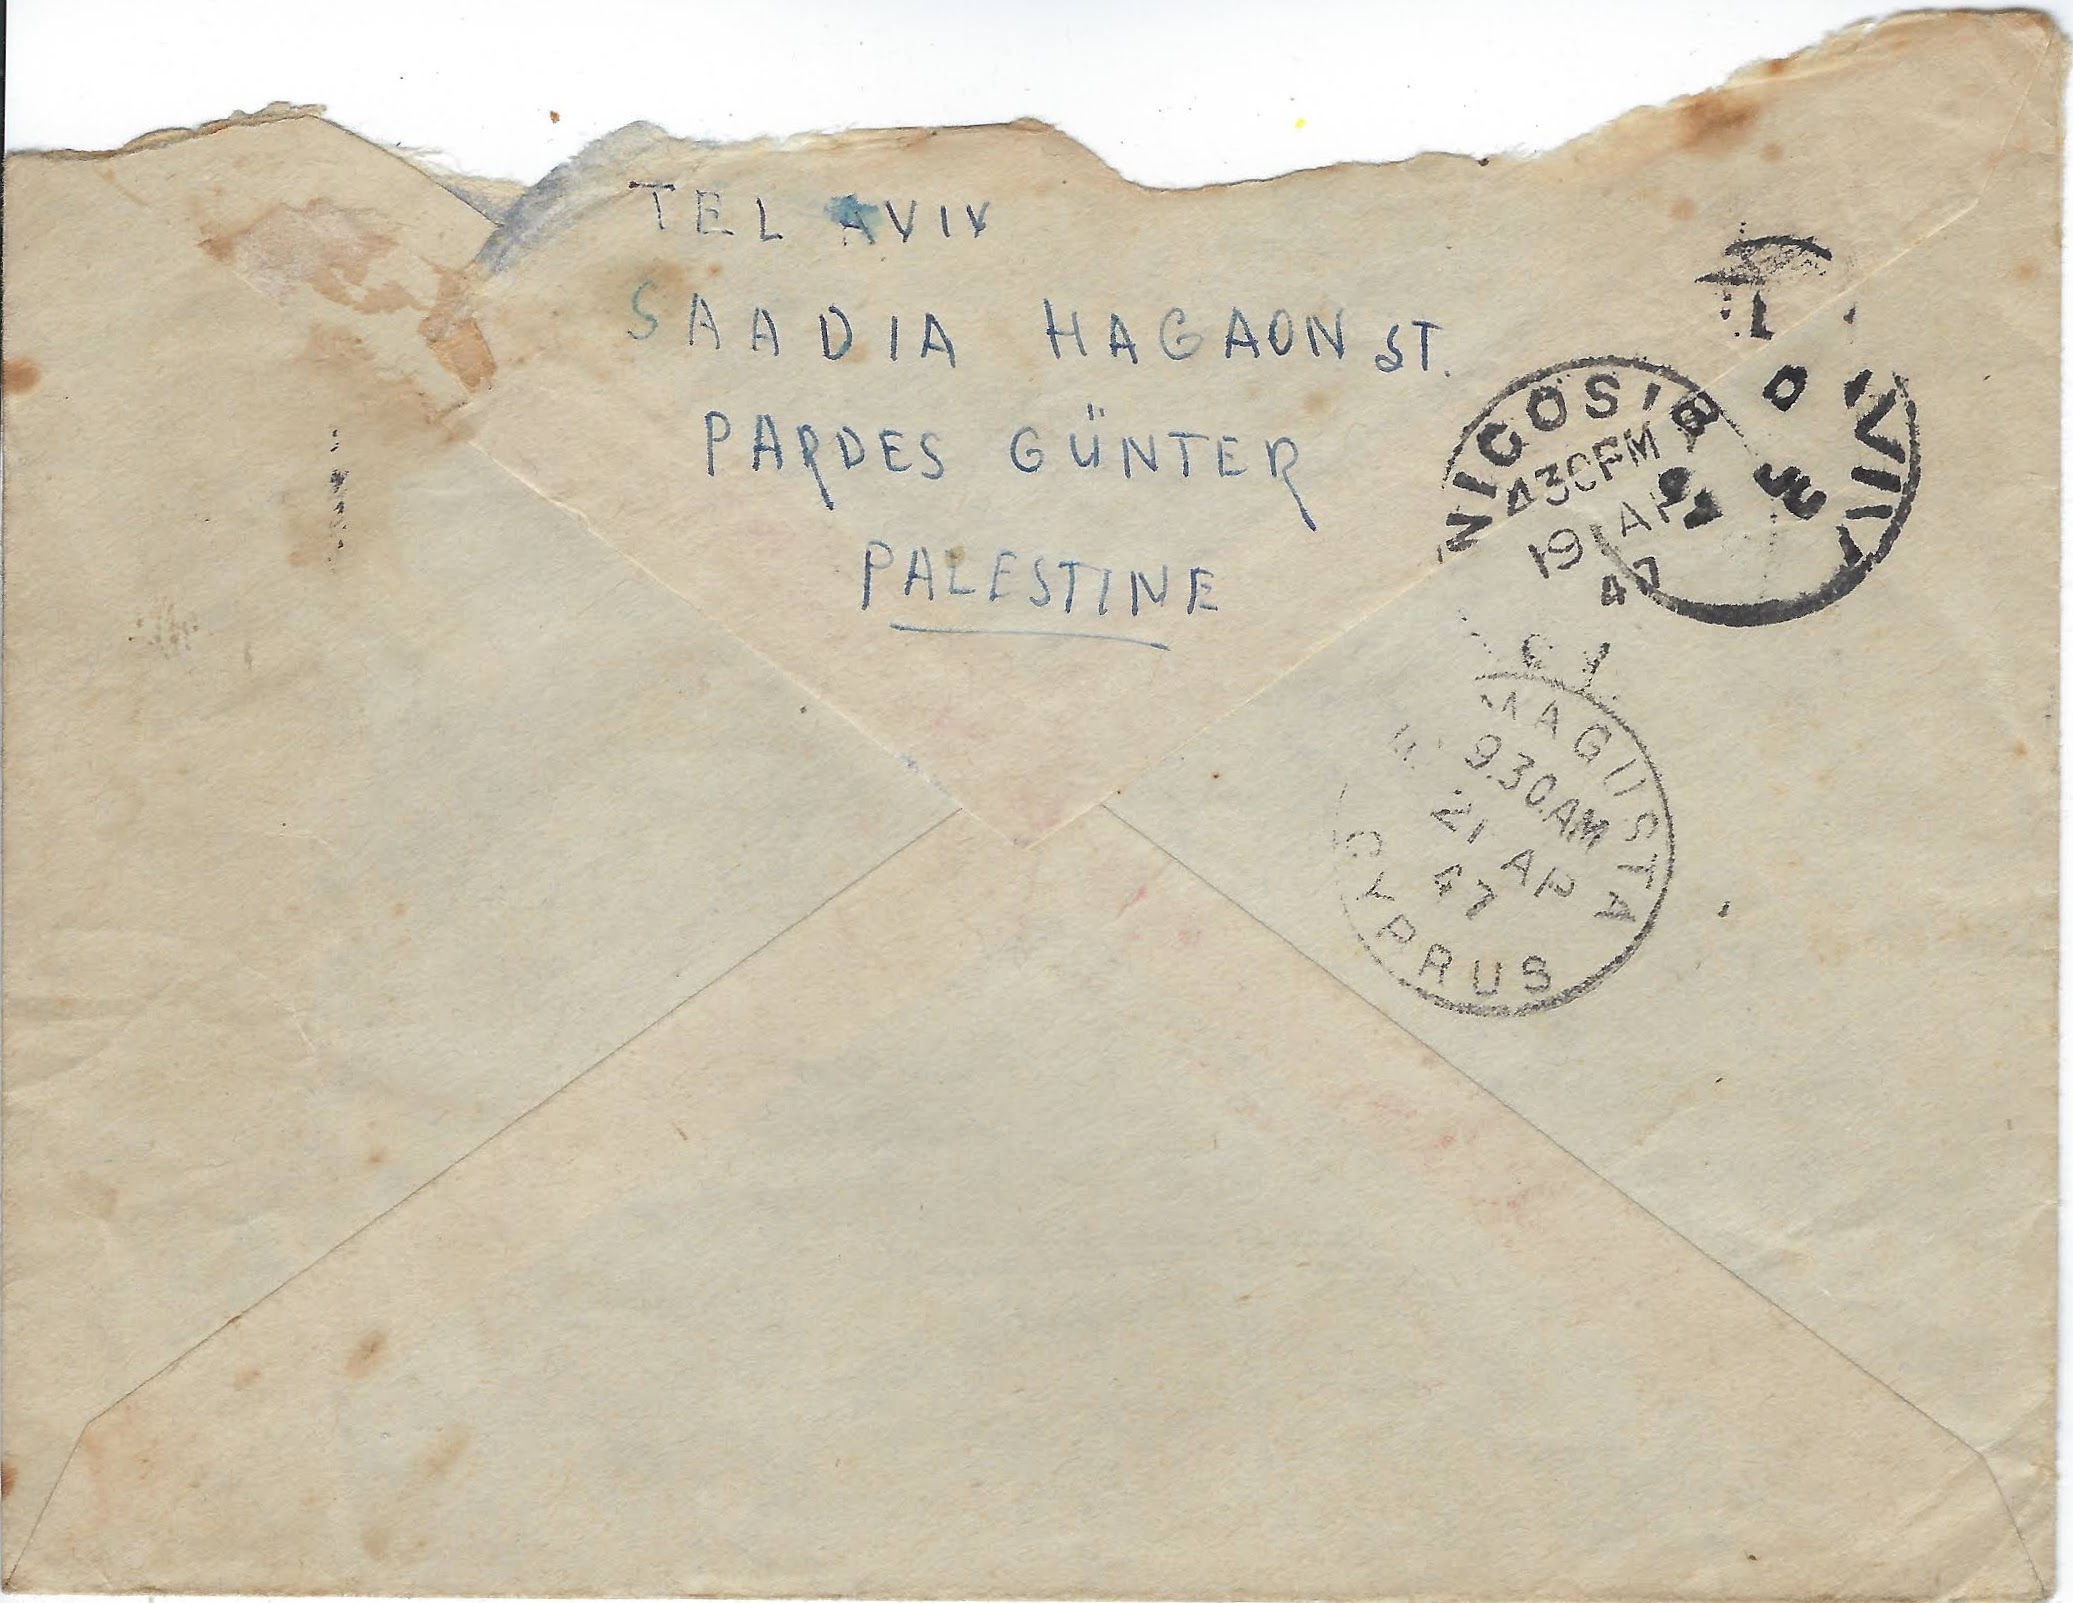 TEL AVIV
SAADIA HAGAON ST.
PARDES GÜNTER
PALESTINE
NICOSIA
4 30 PM
19 AP
47
MAGUSTA
9.30.AM
21 AP
47
CYPRUS